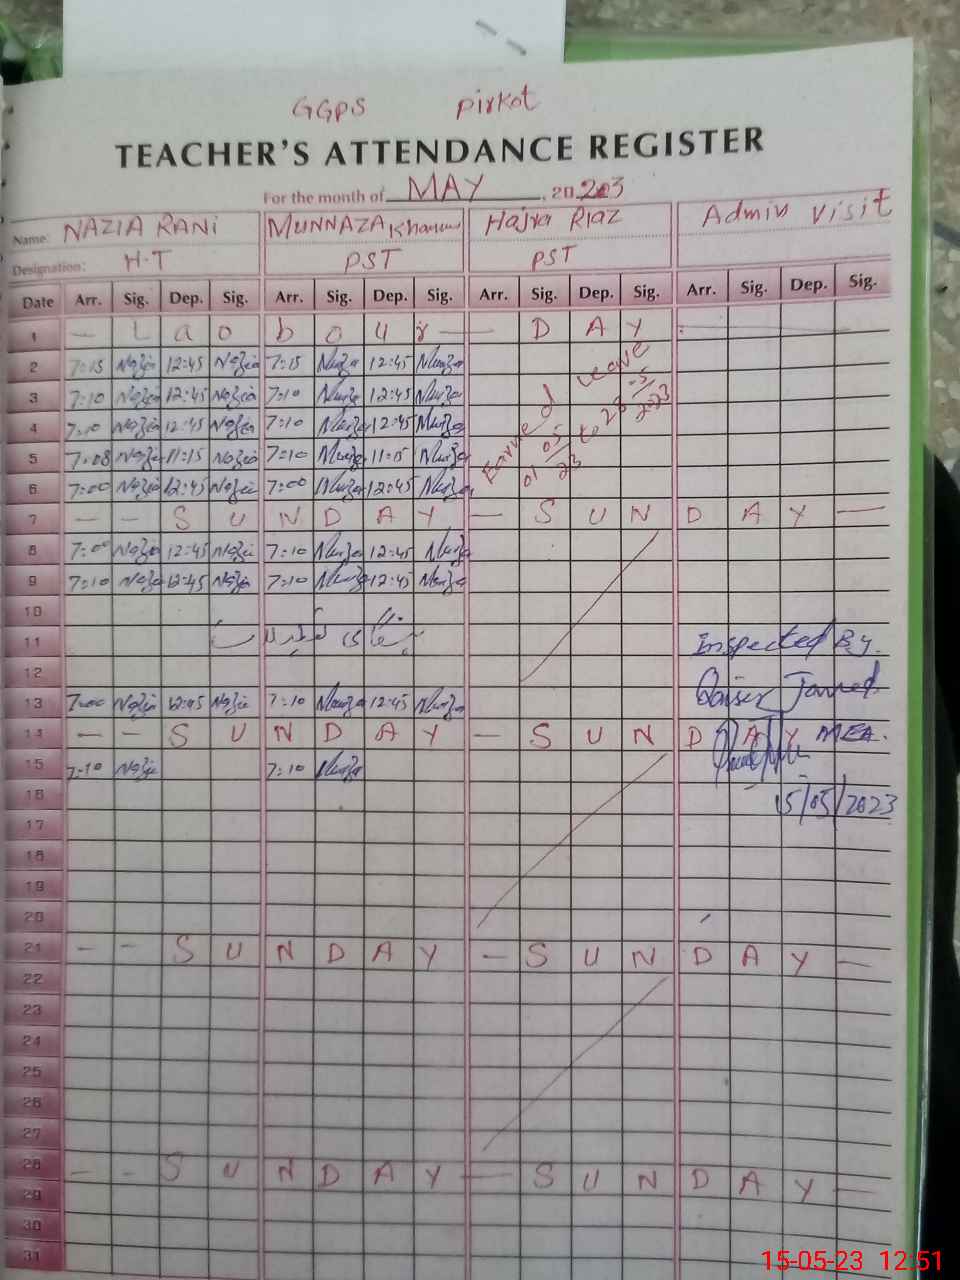 GGPS pirkot
TEACHER'S ATTENDANCE REGISTER
For the month of MAY, 2023
Name: NAZIA RANi MUNNAZA Khanum Hajra Riaz Admin visit
Designation: H.T PST PST
Date Arr. Sig. Dep. Sig. Arr. Sig. Dep. Sig. Arr. Sig. Dep. Sig. Arr. Sig. Dep. Sig.
1 — L a o b o u r — — D A Y
2 7:15 Nazia 12:45 Nazia 7:15 12:45
3 7:10 Nazia 12:45 Nazia 7:10 12:45
4 7:10 Nazia 12:45 Nazia 7:10 12:45
5 7:08 Nazia 11:15 Nazia 7:10 11:15
6 7:00 Nazia 12:45 Nazia 7:00 12:45
Earned leave
01 05/23 to 28-5/2023
7 — — S U N D A Y — S U N D A Y —
8 7:00 Nazia 12:45 Nazia 7:10 12:45
9 7:10 Nazia 12:45 Nazia 7:10 12:45
10
11 Inspected By.
12 Qaiser Javed
13 7:00 Nazia 12:45 Nazia 7:10 12:45
14 — — S U N D A Y — S U N D A Y MEA.
15 7:10 Nazia 7:10
16 15/05/2023
17
18
19
20
21 — — S U N D A Y — S U N D A Y —
22
23
24
25
26
27
28 — — S U N D A Y — S U N D A Y —
29
30
31
15-05-23 12:51